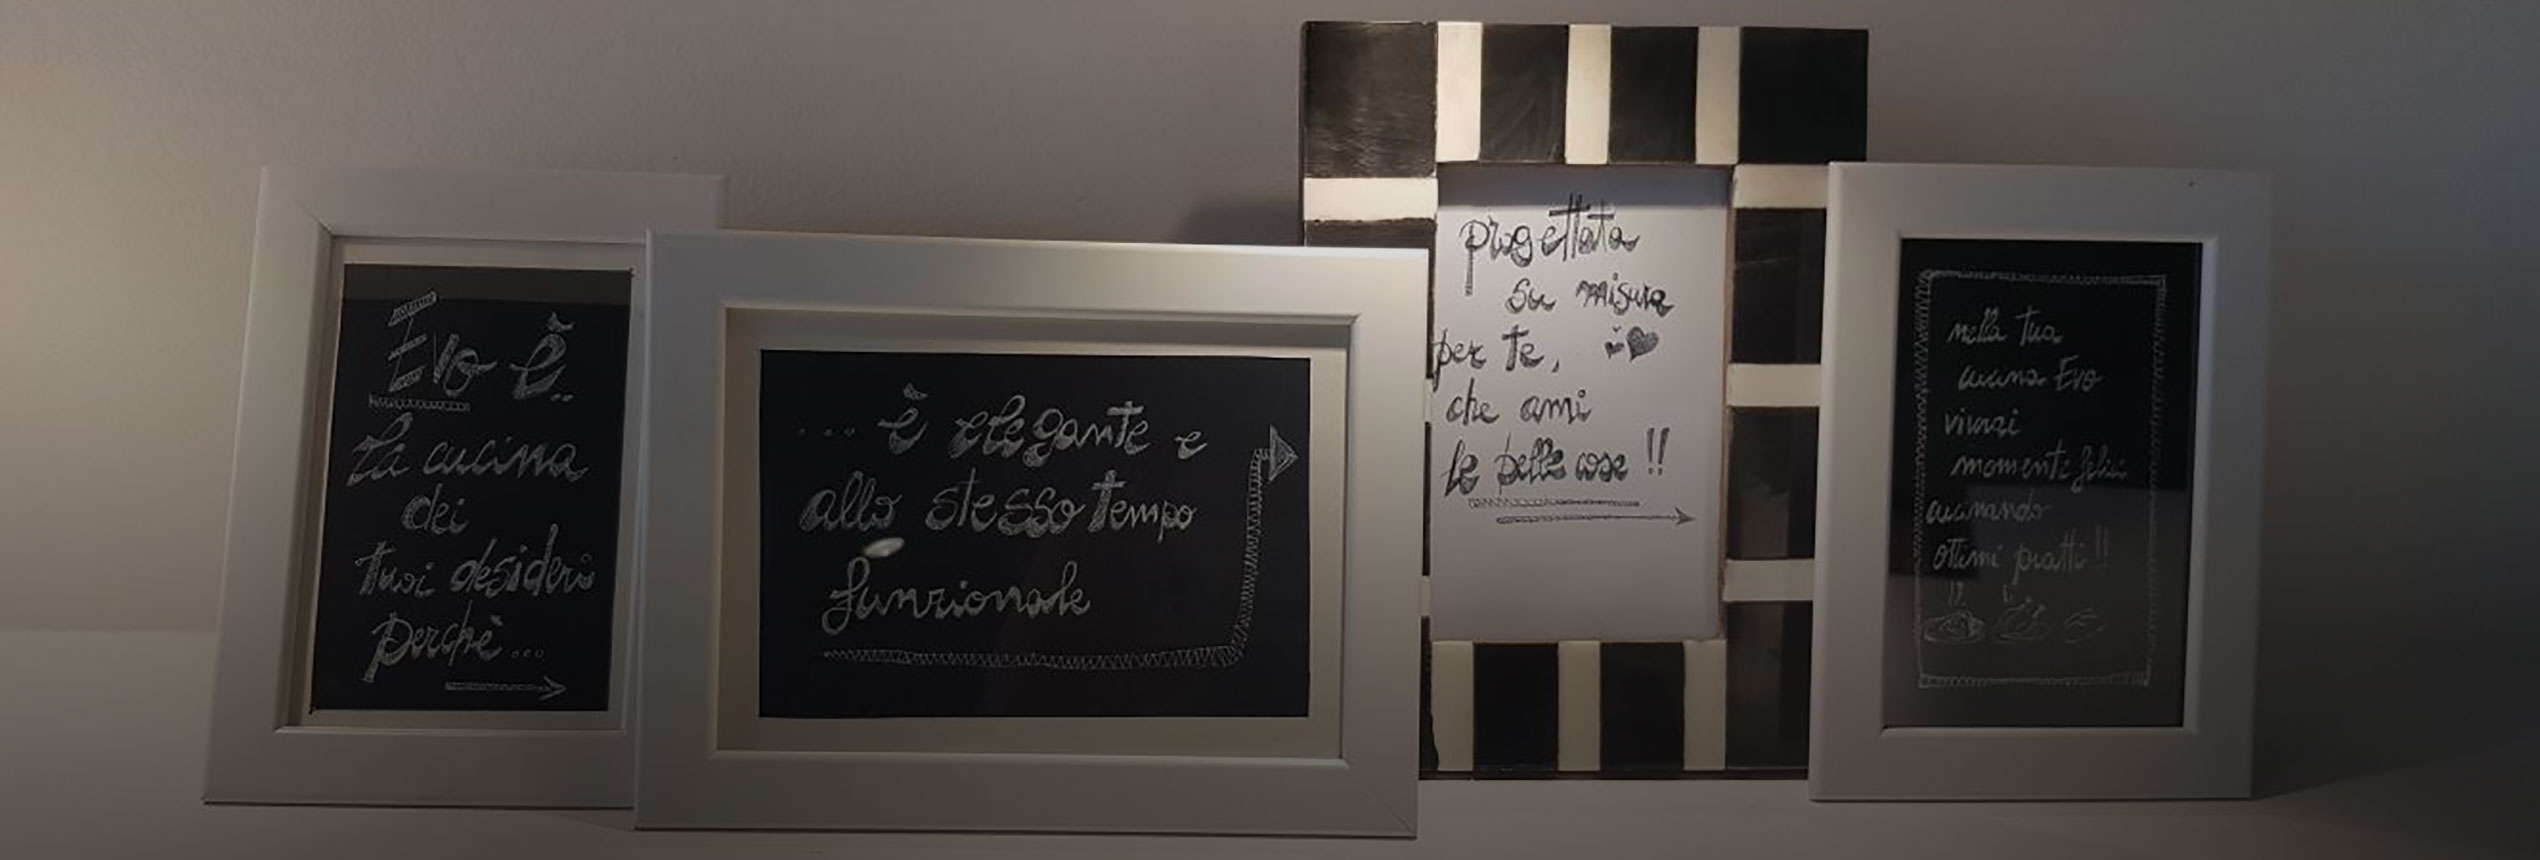 Evo è..
La cucina
dei
tuoi desideri
perchè...
... è elegante e
allo stesso tempo
funzionale
progettata
su misura
per te,
che ami
le belle cose !!
nella tua
cucina Evo
vivrai
momenti felici
cucinando
ottimi piatti !!